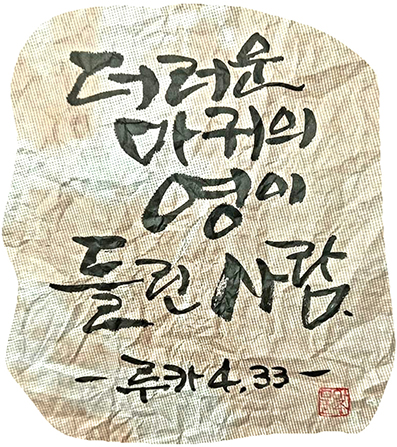 더러운
마귀의
영이
들린 사람.
- 루카 4,33 -